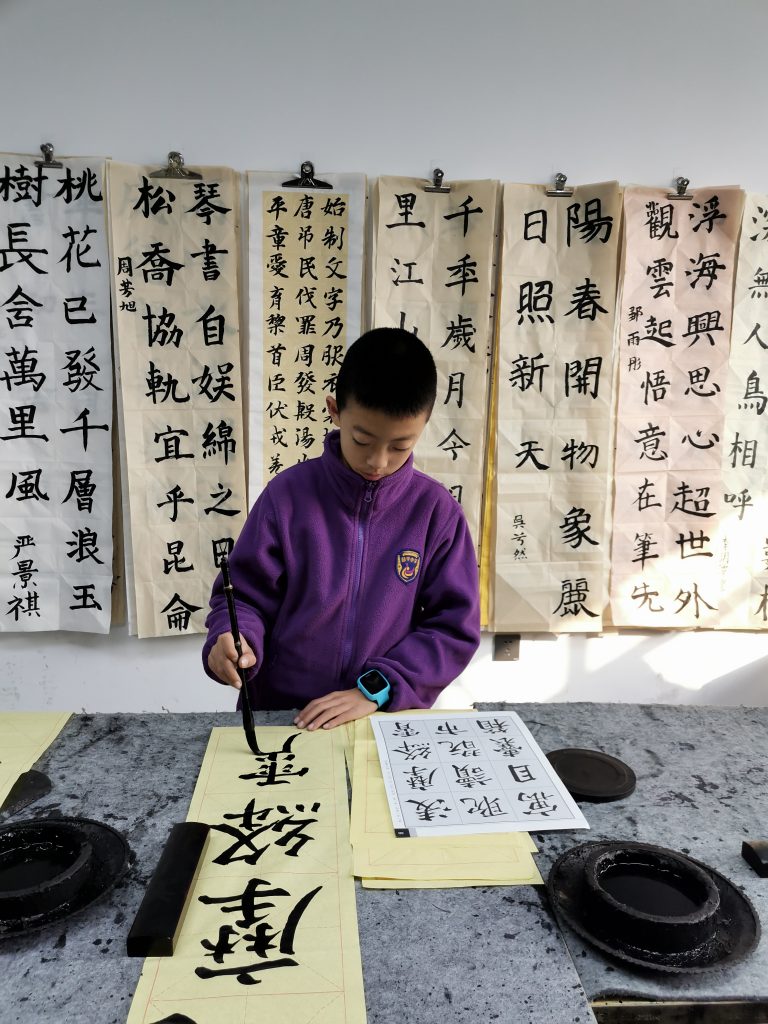 桃花已發千層浪玉
樹長舍萬里風
严景祺
琴書自娱綿之
松喬協軌宜乎昆侖
周芳旭
始制文字乃服衣
唐吊民伐罪周發殷湯
平章愛育黎首臣伏戎羌
千季歲月今
里江
陽春開物象麗
日照新天
浮海興思心超世外
觀雲起悟意在筆先
鄒雨彤
無人鳥相呼
摩絳霄
凌摩絳霄
耽讀翫市
寓目囊箱